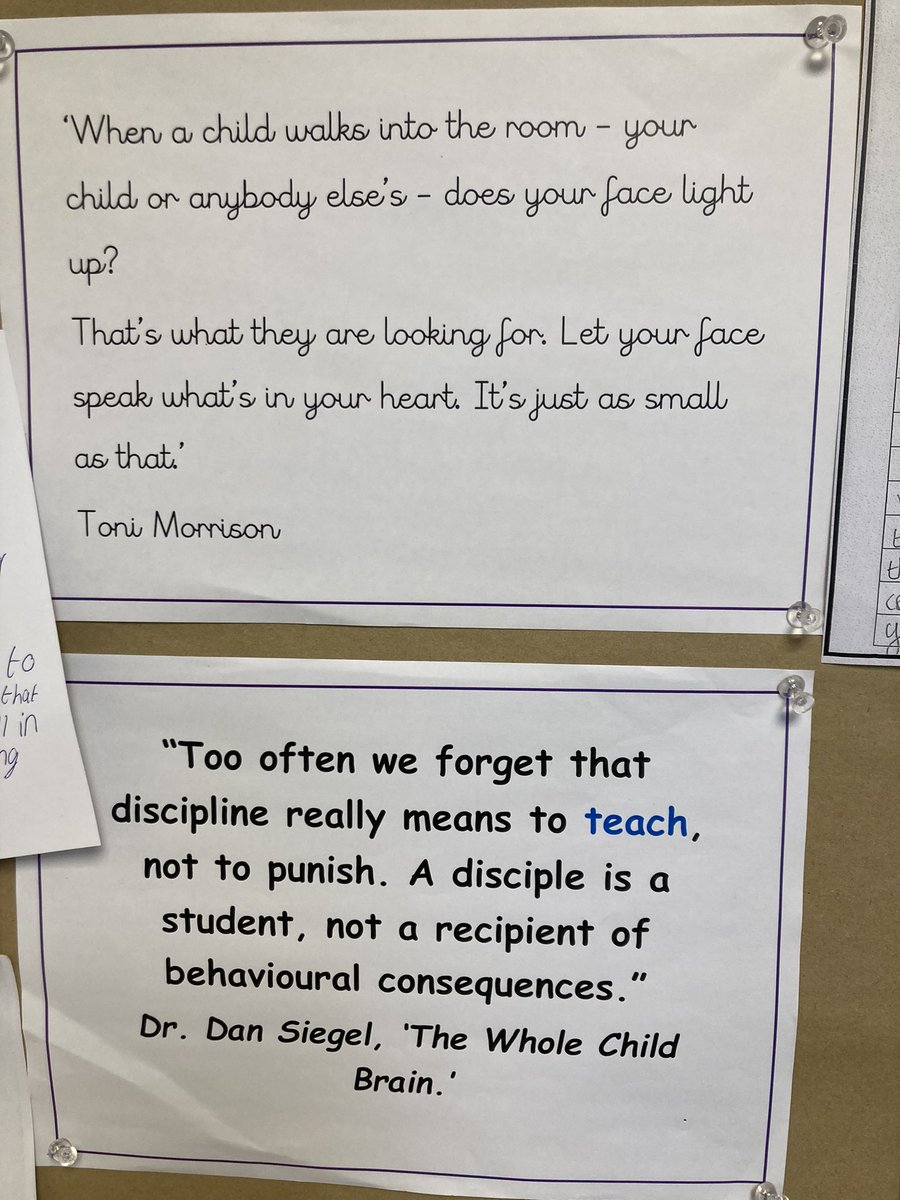 ‘When a child walks into the room – your
child or anybody else’s – does your face light
up?
That’s what they are looking for. Let your face
speak what’s in your heart. It’s just as small
as that.’
Toni Morrison
to
that
in
“Too often we forget that
discipline really means to teach,
not to punish. A disciple is a
student, not a recipient of
behavioural consequences.”
Dr. Dan Siegel, ‘The Whole Child
Brain.’